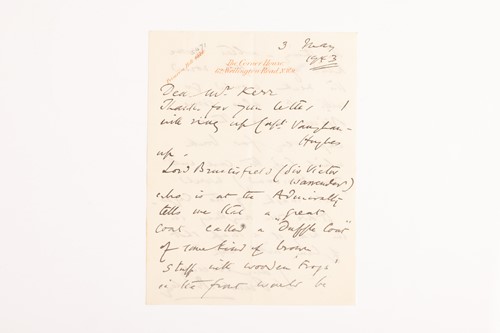 The Corner House
Wellington Road N.W.8
3 May
1943
Dear Mr. Kerr
Thanks for your letter. I
will ring up Capt. Vaughan-
Hughes
up.
Lord Bruntisfield (Sir Victor
Warrender)
who is at the Admiralty
tells me that a "great
coat called a "Duffle Coat"
of some kind of brown
stuff with wooden 'Frogs'
in the front would be